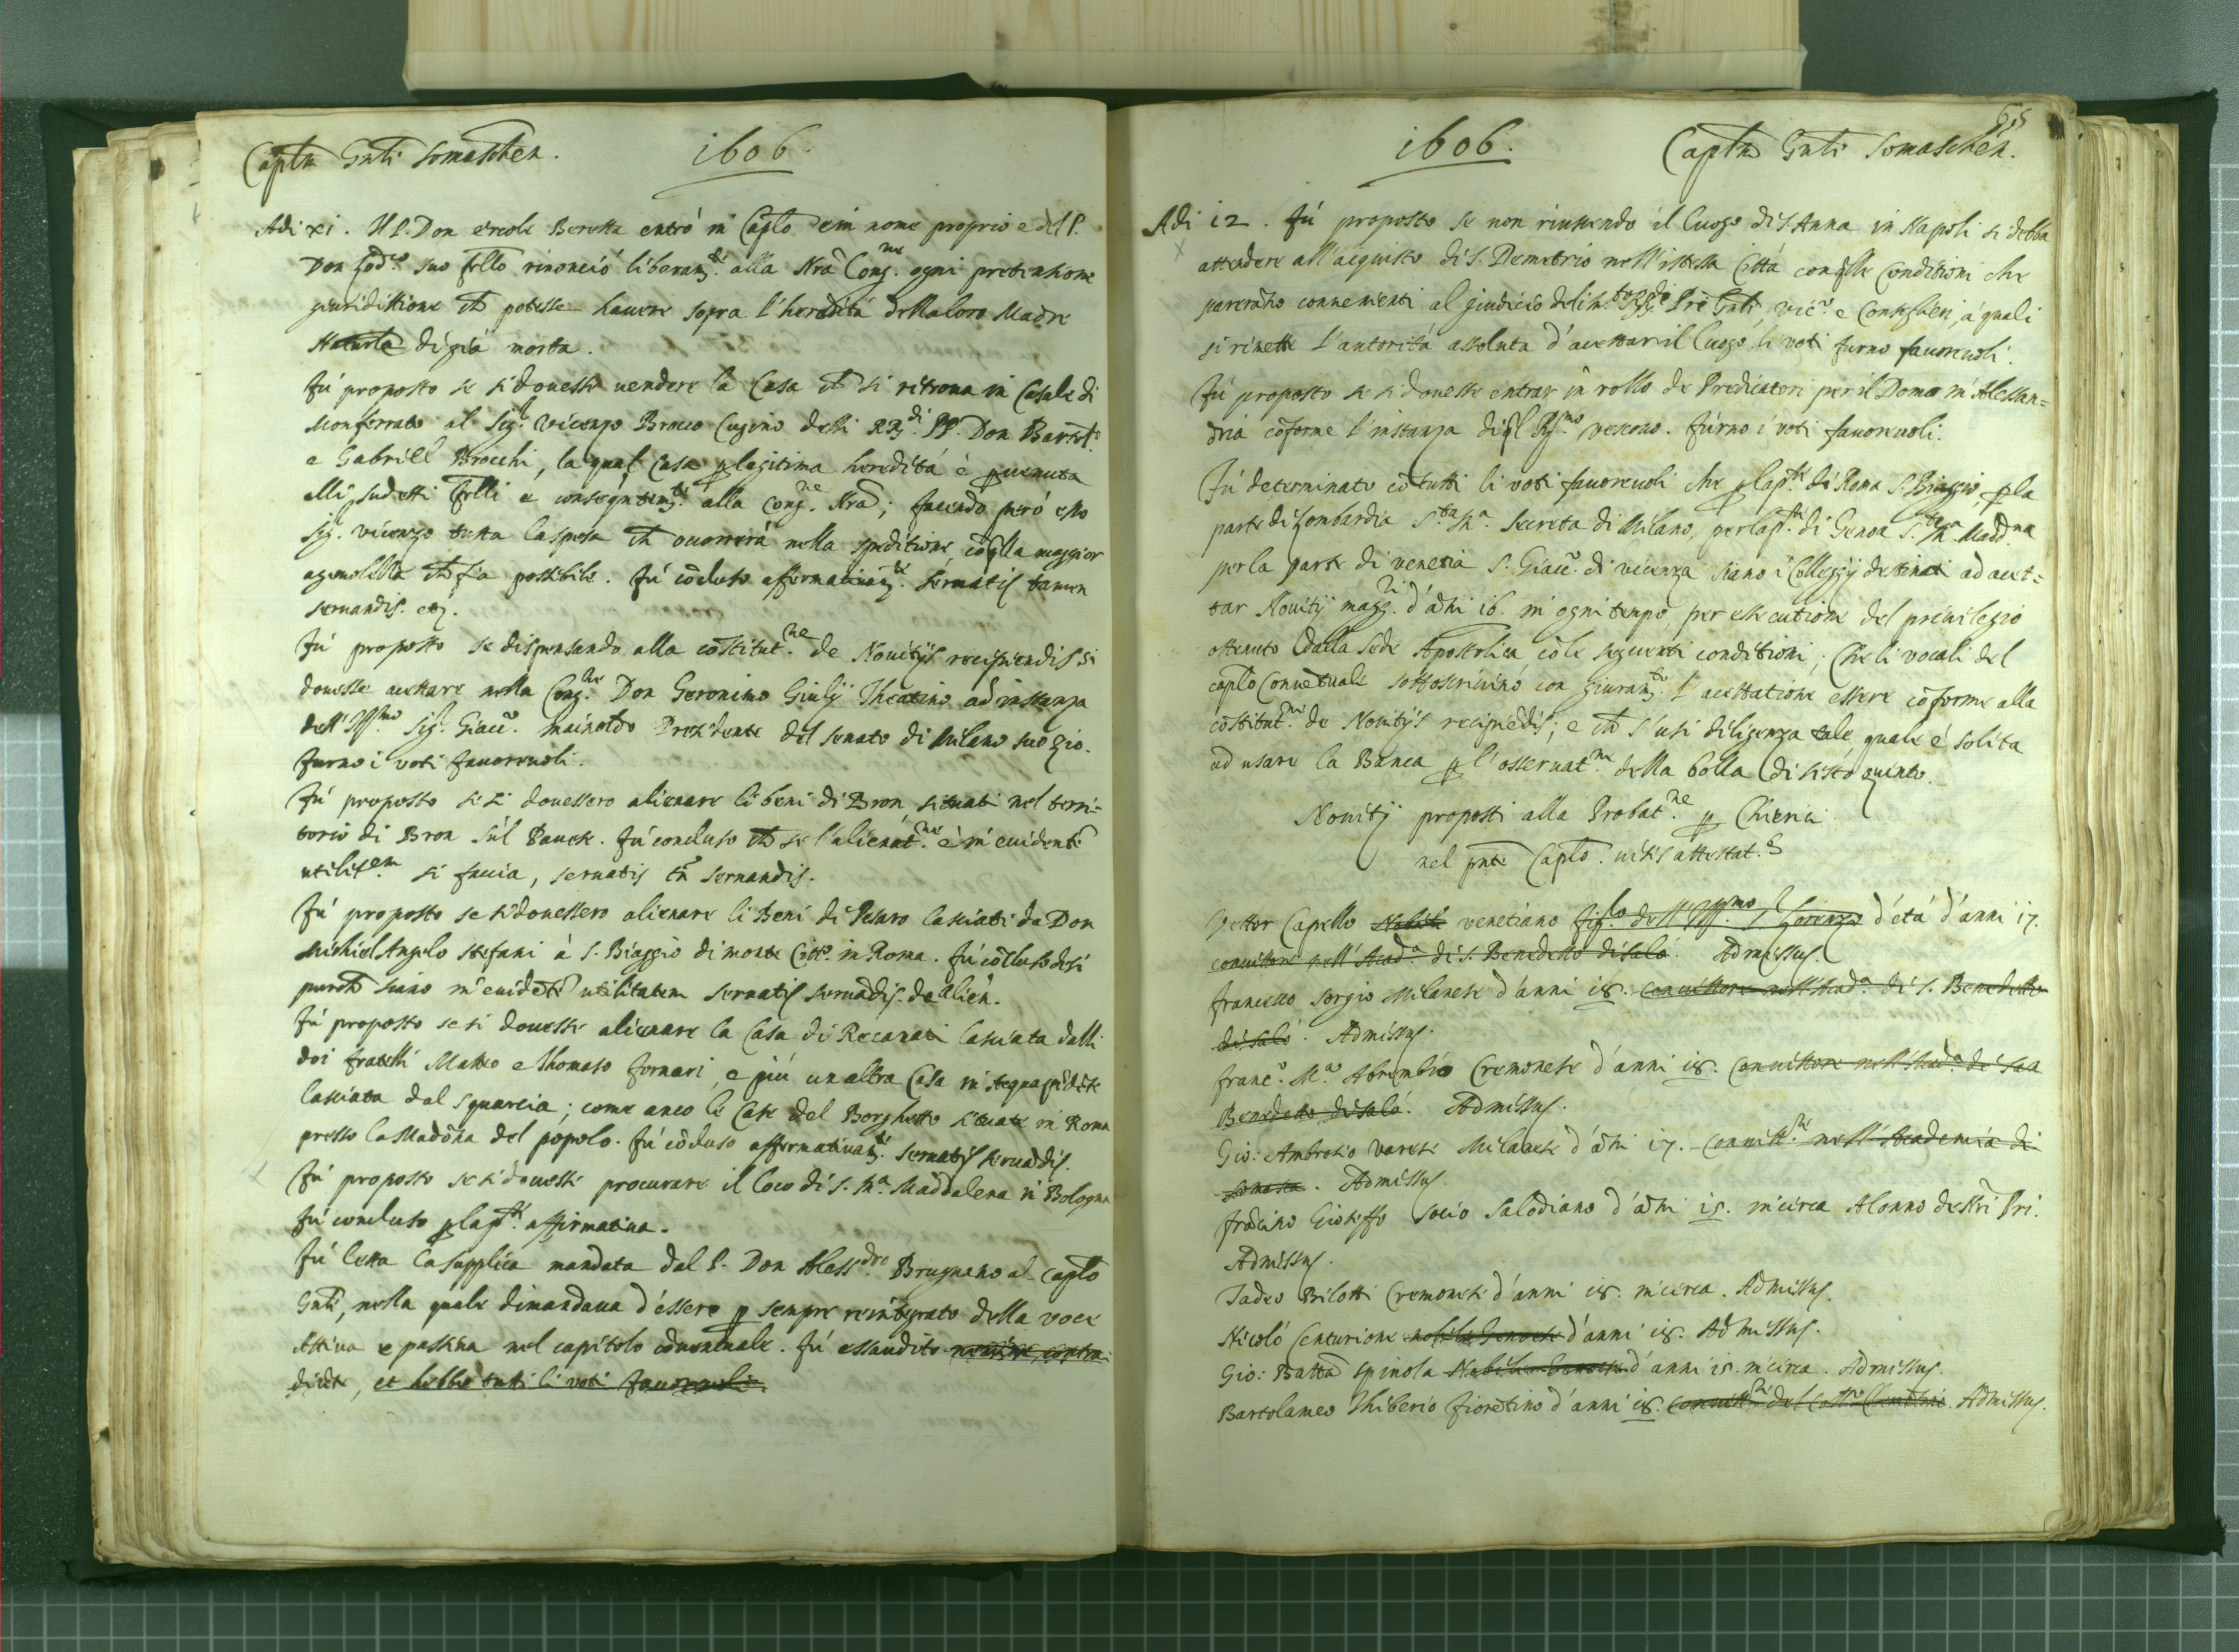 Captm Gnti Somaschen. 1606.
Adi xi. Il P. Don Ercole Beretta entrò in Caplo e in nome proprio e del P.
Don suo frello rinonciò liberamte. alla Nra Congne. ogni pretensione
giuridittione ch potesse hauere sopra l'heredità della loro Madre
di già morta.
Fù proposto se si douesse uendere la Casa ch si ritroua in Casale di
Monferrato al Sigr. Vicenzo Brocco Cugino delli RRdi. PP. Don
e Gabriell Brocchi, la qual Casa p legitima heredità è puenuta
alli sudetti frelli e conseqntemte. alla Congne. Nra; facendo però esso
Sig. Vicenzo tutta la spesa ch occorrerà nella speditione cō qlla maggior
ageuolezza ch sia possibile. Fù cōcluso affermatiuamte. seruatis tamen
seruandis. etc.
Fù proposto se dispensando alla cōstitutne. de Nouitijs recipiendis si
douesse accettare nella Congne. Don Geronimo Giulij Theatino ad instanza
dell' Illmo. Sigr. Giac°. Mainoldo Presidente del Senato di Milano suo zio.
furno i voti fauoreuoli.
Fù proposto se si douessero alienare li beni di Bron situati nel terri=
torio di Bron sùl Pauese. Fù concluso ch se l'alienatne. è in euidente
utilitem. si faccia, seruatis tn seruandis.
Fù proposto se si douessero alienare li Beni di Pesaro lasciati da Don
Michiel Angelo Stefani à S. Biaggio di monte Citto. in Roma. Fù cōcluso de si
purch siano in euidēte utilitatem seruatis seruādis. de alien.
Fù proposto se si douesse alienare la Casa di Recanati lasciata dalli
doi fratelli Matteo e Thomaso Fornari, e più un altra Casa in
lasciata dal Squarcia; come anco le Case del Borghetto situate in Roma
presso la Madōna del popolo. Fù cōcluso affermatiuamte. seruatis seruādis.
Fù proposto se si douesse procurare il loco di S. Ma. Maddalena in Bologna
Fù concluso p la pte. affirmatiua.
Fù letta la supplica mandata dal P. Don Alessdro. Brugnano al Caplo
Gnti, nella quale dimandaua d'essere p sempre reintegrato della voce
Attiua e passiua nel capitolo cōuentuale. Fù essaudito nemine contra
dicēte, et hebbe tutti li voti fauoreuoli.
65
1606. Captm Gnti Somaschen.
Adi 12. Fù proposto se non riuscendo il luogo di S. Anna in Napoli si debba
attendere all'acquisto di S. Demetrio nell'istessa Città con qlle conditioni che
pareranno conuenienti al giudicio del Pre Gnti, Vic°. e Consiglieri, à quali
si rimette l'autorità assoluta d'accettar il luogo. li voti furno fauoreuoli.
Fù proposto se si douesse entrar in rollo de Predicatori per il Domo in Alessan=
dria cōforme l'instanza di ql Rmo. Vescouo. furno i voti fauoreuoli.
Fù determinato cō tutti li voti fauoreuoli che p la pte. di Roma S. Biaggio, p la
parte di Lombardia Sta. Ma. Secreta di Milano, per la pte. di Genoa Sta. Ma. Maddna
per la parte di Venetia S. Giac°. di Vicenza siano i Colleggij destinati ad accet=
tar Nouitij maggri. d'āni 16. in ogni tempo, per essecutione del priuilegio
ottenuto dalla Sede Apostolica cō le seguenti conditioni; Che li vocali del
caplo Conuētuale sottoscriuino con giuramto. l'accettatione essere cōforme alla
cōstitutne. de Nouitijs recipiēdis; e ch s'usi diligenza tale, quale è solita
ad usare la Banca p l'osseruatne. della bolla di Sisto quinto.
Nouitij proposti alla Probatne. p Chierici
nel pnte Caplo. uisis attestat.s
Vettor Capello Nobile venetiano figlo. dell' Illmo. Sr. Lorenzo d'età d'anni 17.
conuittore nell' Acada. di S. Benedetto di Salò. Admissus.
Francesco Sorgio Milanese d'anni 18. conuittore nell' Acada. di S. Benedetto
di Salò. Admissus.
Franc°. Ma. Abrembio Cremonese d'anni 18. conuittore nell' Acada. di San
Benedetto di Salò. Admissus.
Gio: Ambrosio Varese Milanese d'āni 17. conuittre. nell' Academia di
Somasca. Admissus.
Frācino Gioseffo Socio Salodiano d'āni 15. in circa Alonno de Nri Pri.
Admissus.
Tadeo Bilotti Cremonese d'anni 18. in circa. Admissus.
Nicolò Centurione nobile Genoese d'anni 18. Admissus.
Gio: Batta Spinola Nobile Genoese d'anni 15 in circa. Admissus.
Bartolameo Thiberio fiorētino d'anni 18. conuittre. del Collo. Clemētino. Admissus.